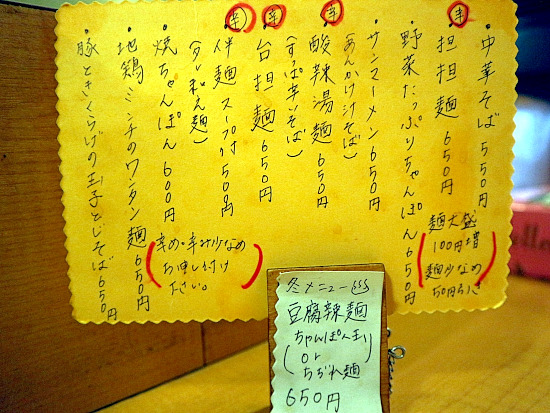 ・中華そば 550円
辛
・担担麺 650円
麺大盛
100円増
麺少なめ
50円引き
・野菜たっぷりちゃんぽん 650円
・サンマーメン 650円
(あんかけ汁そば)
辛
・酸辣湯麺 650円
(すっぱ辛いそば)
辛
・台担麺 650円
辛
・伴麺 スープ付 500円
(タレ和え麺)
・焼ちゃんぽん 600円
・地鶏ミンチのワンタン麺 650円
・豚ときくらげの玉子とじそば 650円
辛め・辛み少なめ
お申し付け
ださい。
冬メニュー
豆腐辣麺
ちゃんぽん玉
or
ちぢれ麺
650円